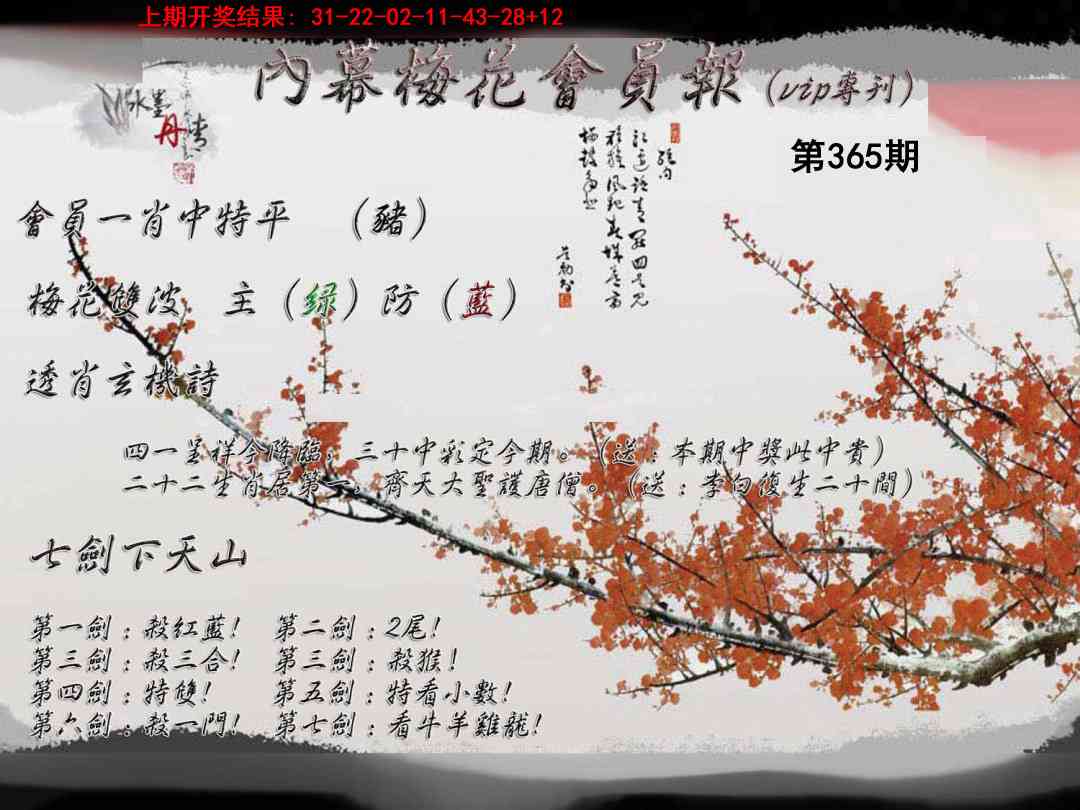 上期开奖结果: 31-22-02-11-43-28+12
內幕梅花會員報(vip專刊)
水墨
丹青
第365期
會員一肖中特平 (豬)
梅花雙波 主(绿)防(藍)
透肖玄機詩
四一呈祥今降臨,三十中彩定今期。(送:本期中獎此中貴)
二十二生肖居第一,齊天大聖護唐僧。(送:李白復生二十間)
七劍下天山
第一劍:殺紅藍! 第二劍:2尾!
第三劍:殺三合! 第三劍:殺猴!
第四劍:特雙! 第五劍:特看小數!
第六劍:殺一門! 第七劍:看牛羊雞龍!